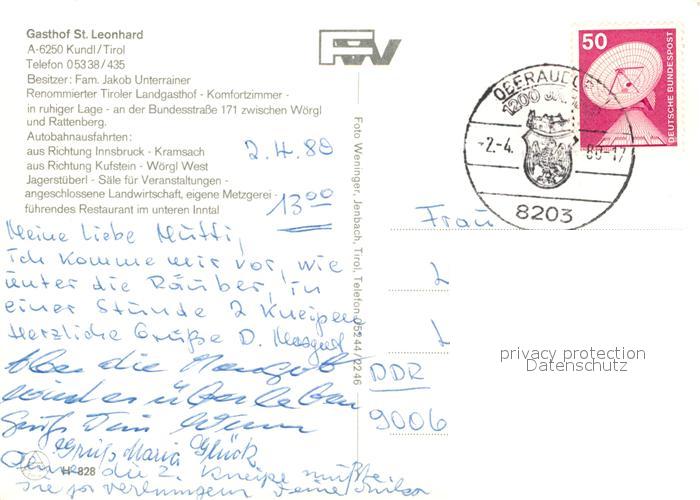 Gasthof St. Leonhard
A-6250 Kundl/Tirol
Telefon 05338/435
Besitzer: Fam. Jakob Unterrainer
Renommierter Tiroler Landgasthof - Komfortzimmer -
in ruhiger Lage - an der Bundesstraße 171 zwischen Wörgl
und Rattenberg.
Autobahnausfahrten:
aus Richtung Innsbruck - Kramsach
aus Richtung Kufstein - Wörgl West
Jagerstüberl - Säle für Veranstaltungen -
angeschlossene Landwirtschaft, eigene Metzgerei -
führendes Restaurant im unteren Inntal
2.4.80
13 00
Meine liebe Mutti,
ich komme mir vor, wie
unter die Räuber, in
einer Stunde 2 Kneipen
Herzliche Grüße D.
Aber die
wird es überleben
Gruß Dein
Gruß Maria Glück
die 2. Kneipe mußte
H-828
Foto Weninger, Jenbach, Tirol, Telefon 05244/2246
50
DEUTSCHE BUNDESPOST
1200
-2.-4.
80-17
8203
Frau
L
L
DDR
9006
privacy protection
Datenschutz